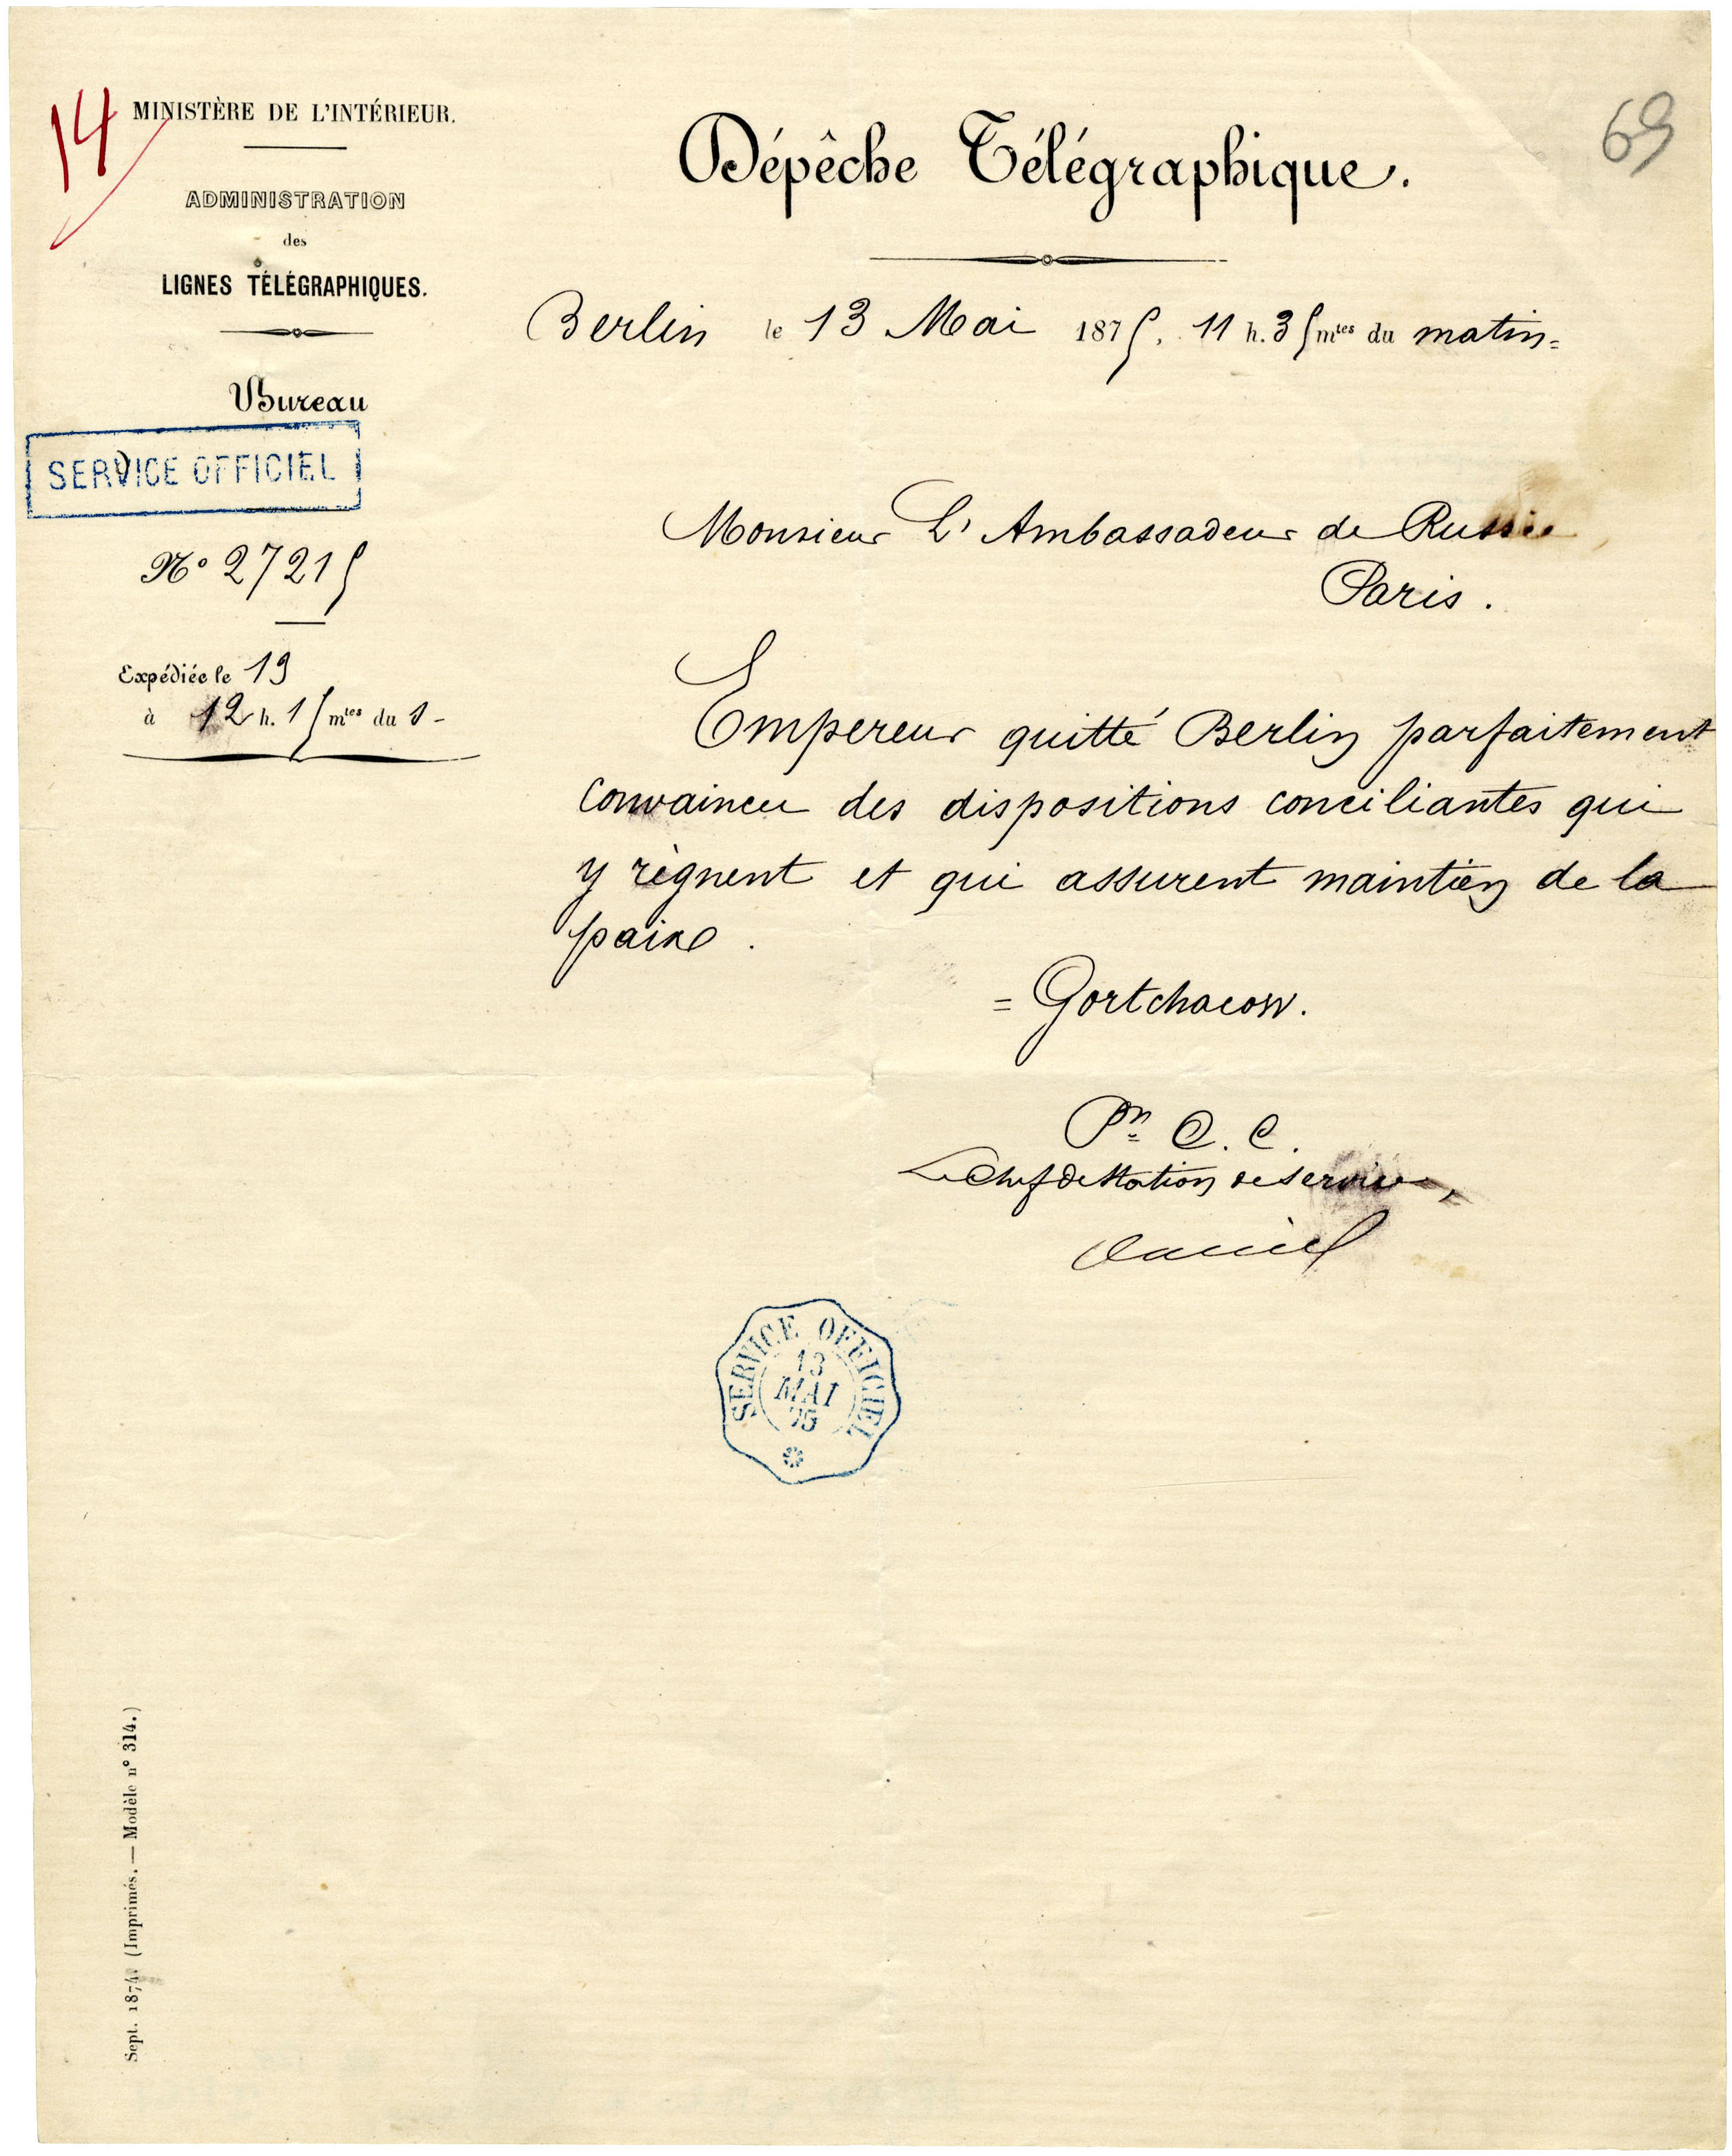 14
MINISTÈRE DE L'INTÉRIEUR.
ADMINISTRATION
des
LIGNES TÉLÉGRAPHIQUES.
Bureau
SERVICE OFFICIEL
N° 27215
Expédiée le 13
à 12 h. 15 mtes du s-
Dépêche Télégraphique.
69
Berlin le 13 Mai 1875. 11 h. 35 mtes du matin=
Monsieur L'Ambassadeur de Russie
Paris.
Empereur quitté Berlin parfaitement
convaincu des dispositions conciliantes qui
y règnent et qui assurent maintien de la
paix.
= Gortchacow.
Pn C. C.
Le Chef de Station de service,
SERVICE OFFICIEL
13
MAI
75
Sept. 1874. (Imprimés. — Modèle n° 314.)